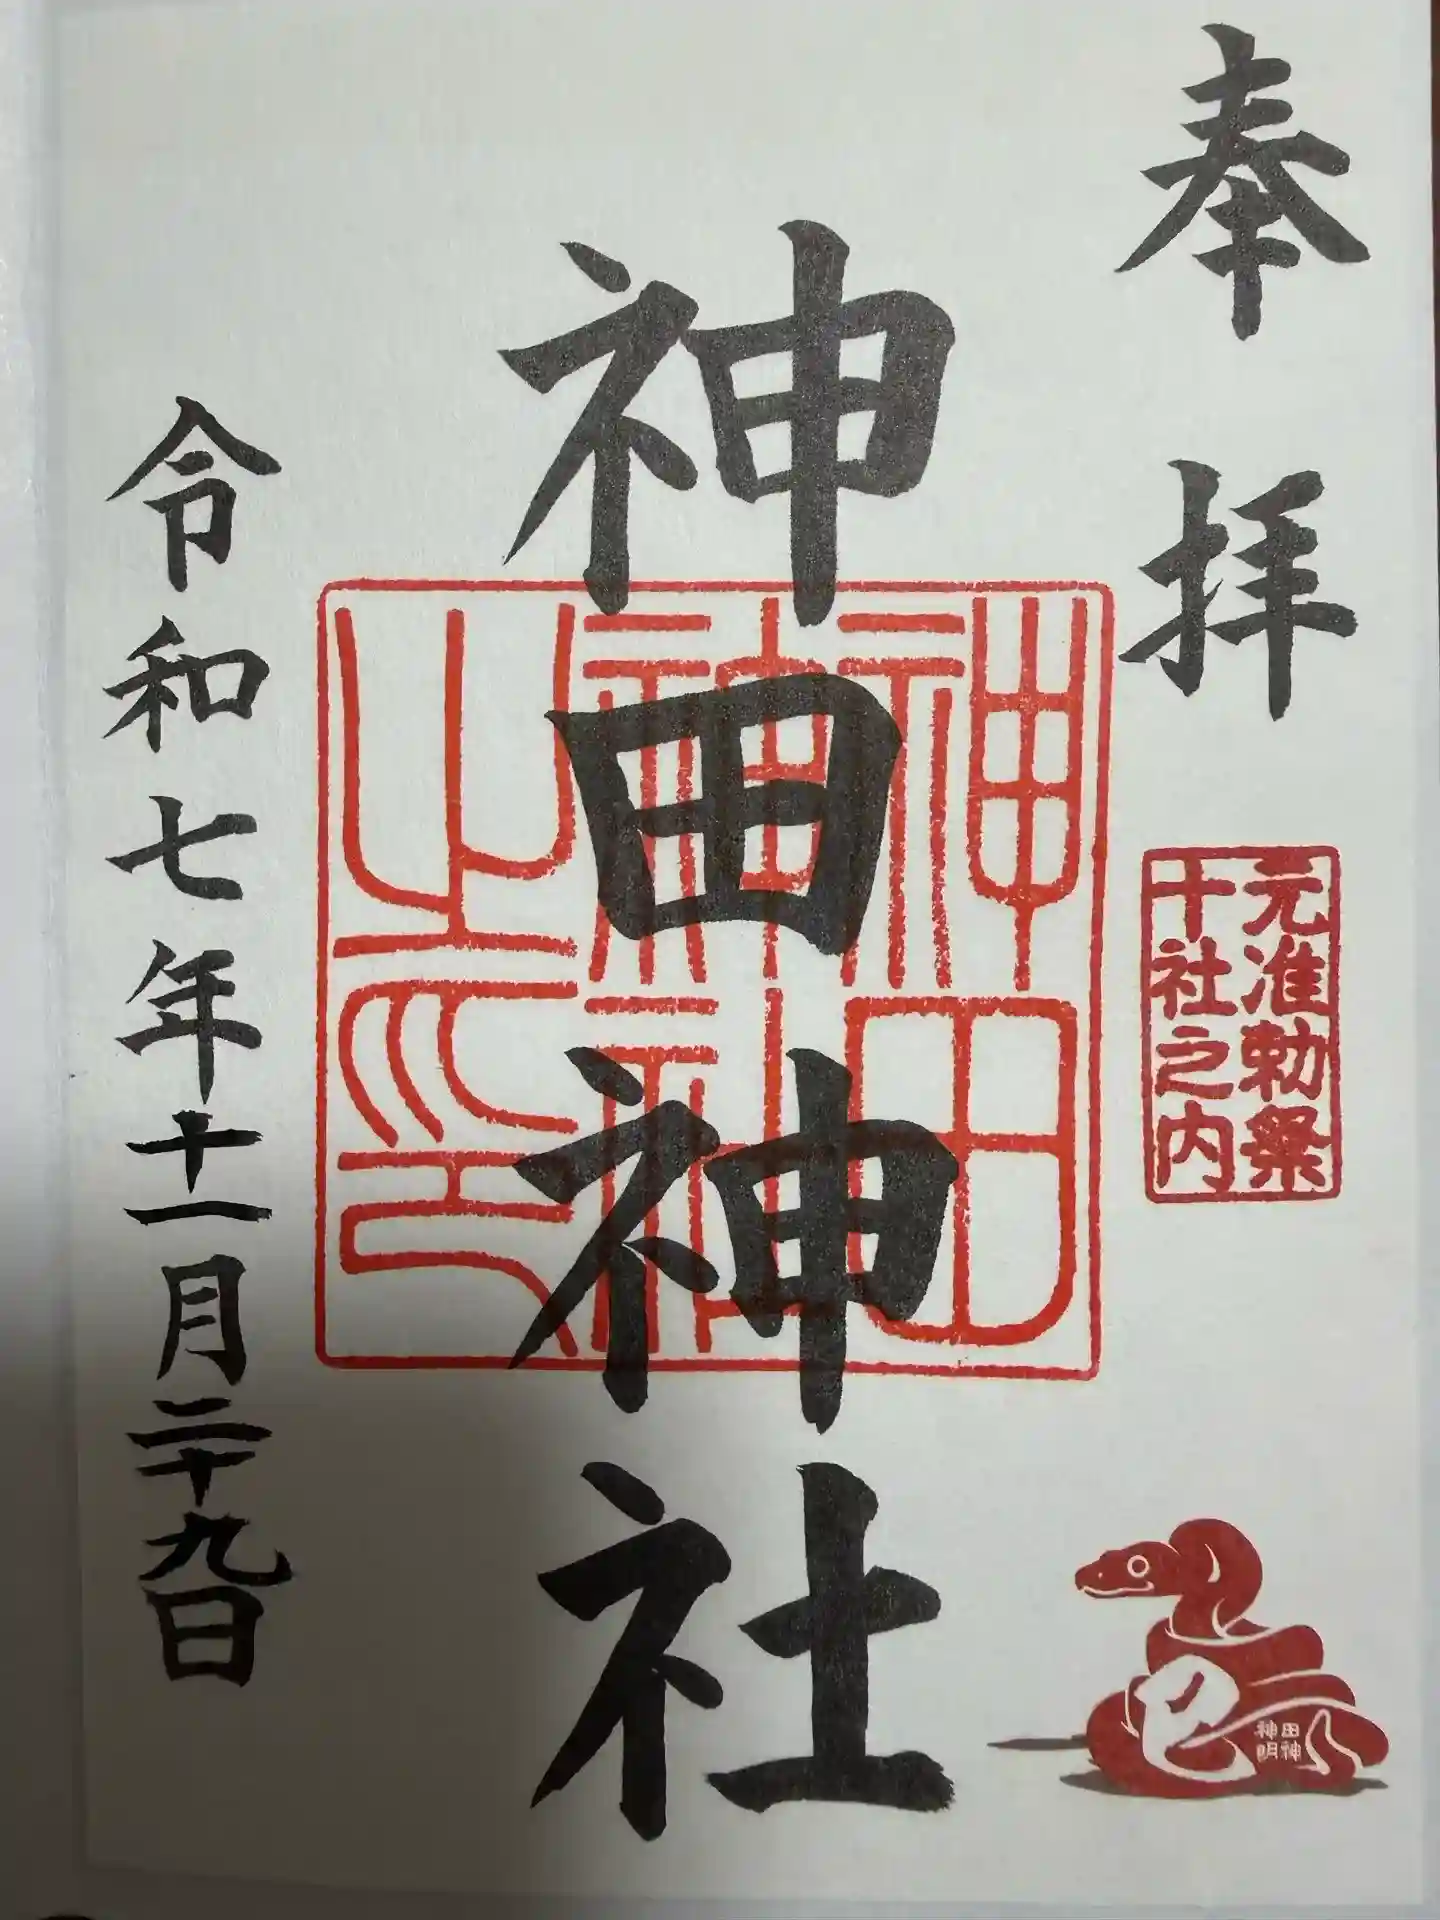 奉拝
元准勅祭
十社之内
神田神社
神田
神社
之印
巳
神田
明神
令和七年十一月二十九日